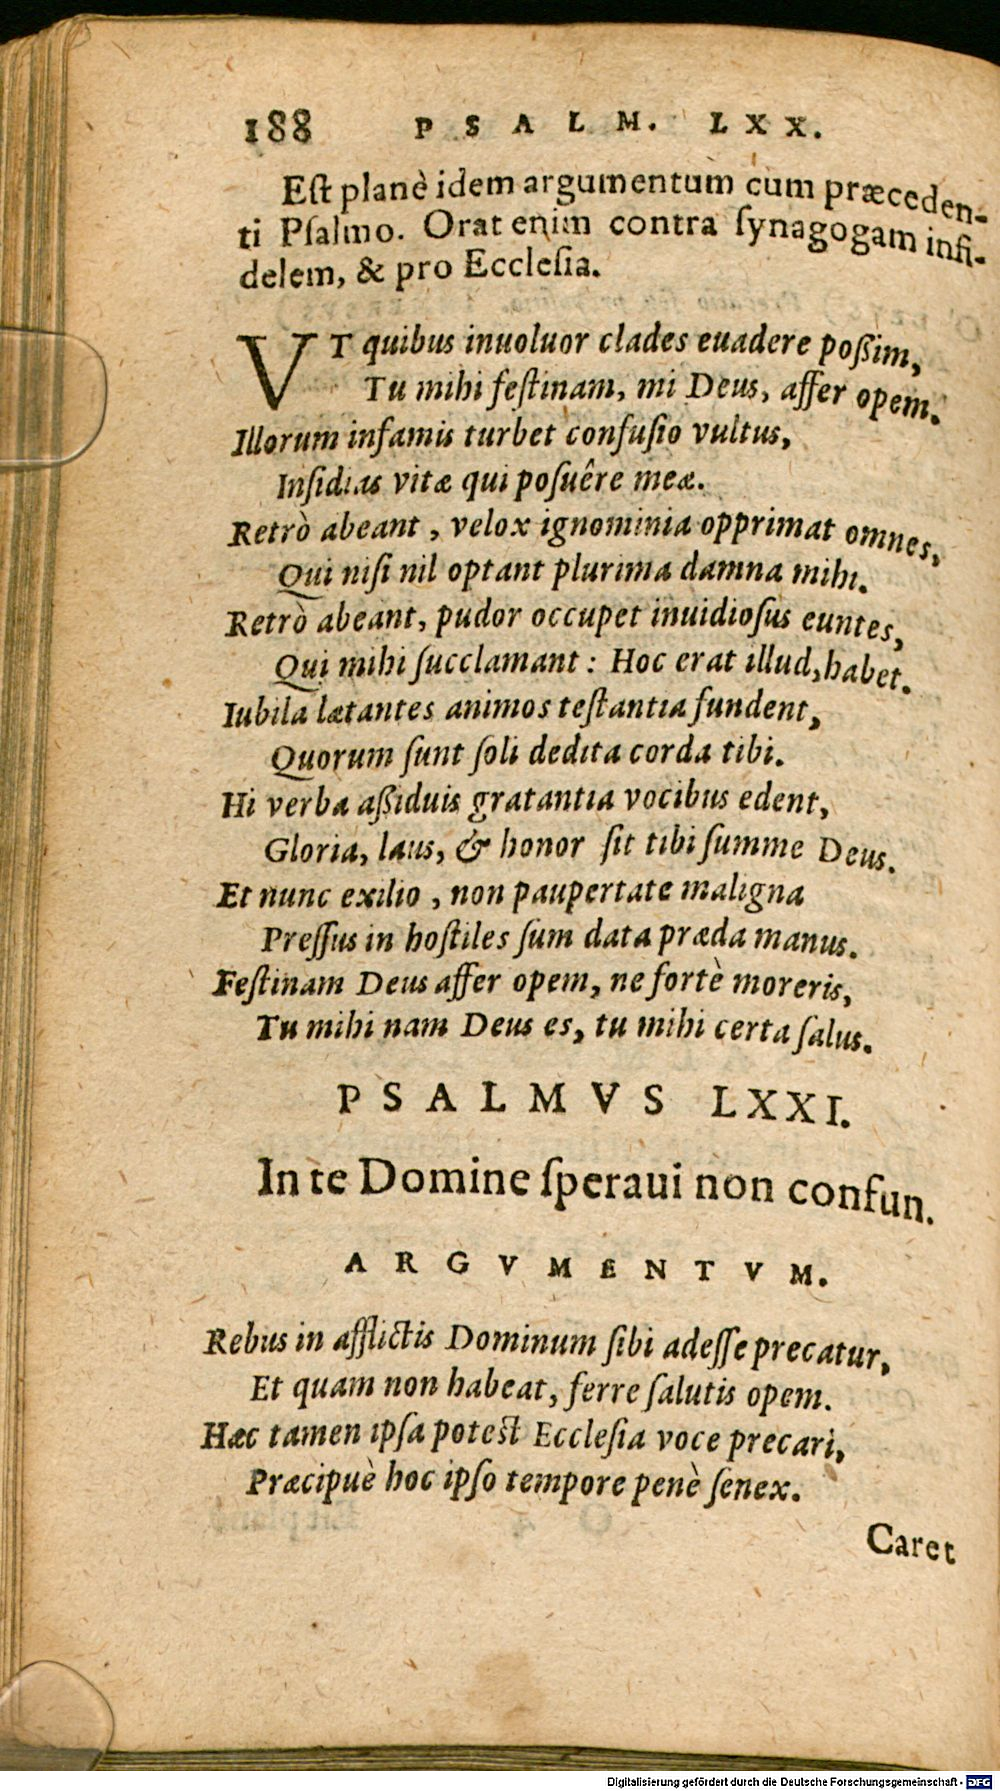 188 PSALM. LXX.
Est planè idem argumentum cum præceden-
ti Psalmo. Orat enim contra ſynagogam infi-
delem, & pro Eccleſia.
VT quibus inuoluor clades euadere poßim,
Tu mihi feſtinam, mi Deus, affer opem.
Illorum infamis turbet confuſio vultus,
Inſidias vitæ qui poſuêre meæ.
Retrò abeant, velox ignominia opprimat omnes,
Qui niſi nil optant plurima damna mihi.
Retrò abeant, pudor occupet inuidioſus euntes,
Qui mihi ſucclamant: Hoc erat illud, habet.
Iubila lætantes animos teſtantia fundent,
Quorum ſunt ſoli dedita corda tibi.
Hi verba aßiduis gratantia vocibus edent,
Gloria, laus, & honor ſit tibi ſumme Deus.
Et nunc exilio, non paupertate maligna
Preſſus in hoſtiles ſum data præda manus.
Feſtinam Deus affer opem, ne fortè moreris,
Tu mihi nam Deus es, tu mihi certa ſalus.
PSALMVS LXXI.
In te Domine ſperaui non confun.
ARGVMENTVM.
Rebus in afflictis Dominum ſibi adeſſe precatur,
Et quam non habeat, ferre ſalutis opem.
Hæc tamen ipſa potest Eccleſia voce precari,
Præcipuè hoc ipſo tempore penè ſenex.
Caret
Digitalisierung gefördert durch die Deutsche Forschungsgemeinschaft - DFG